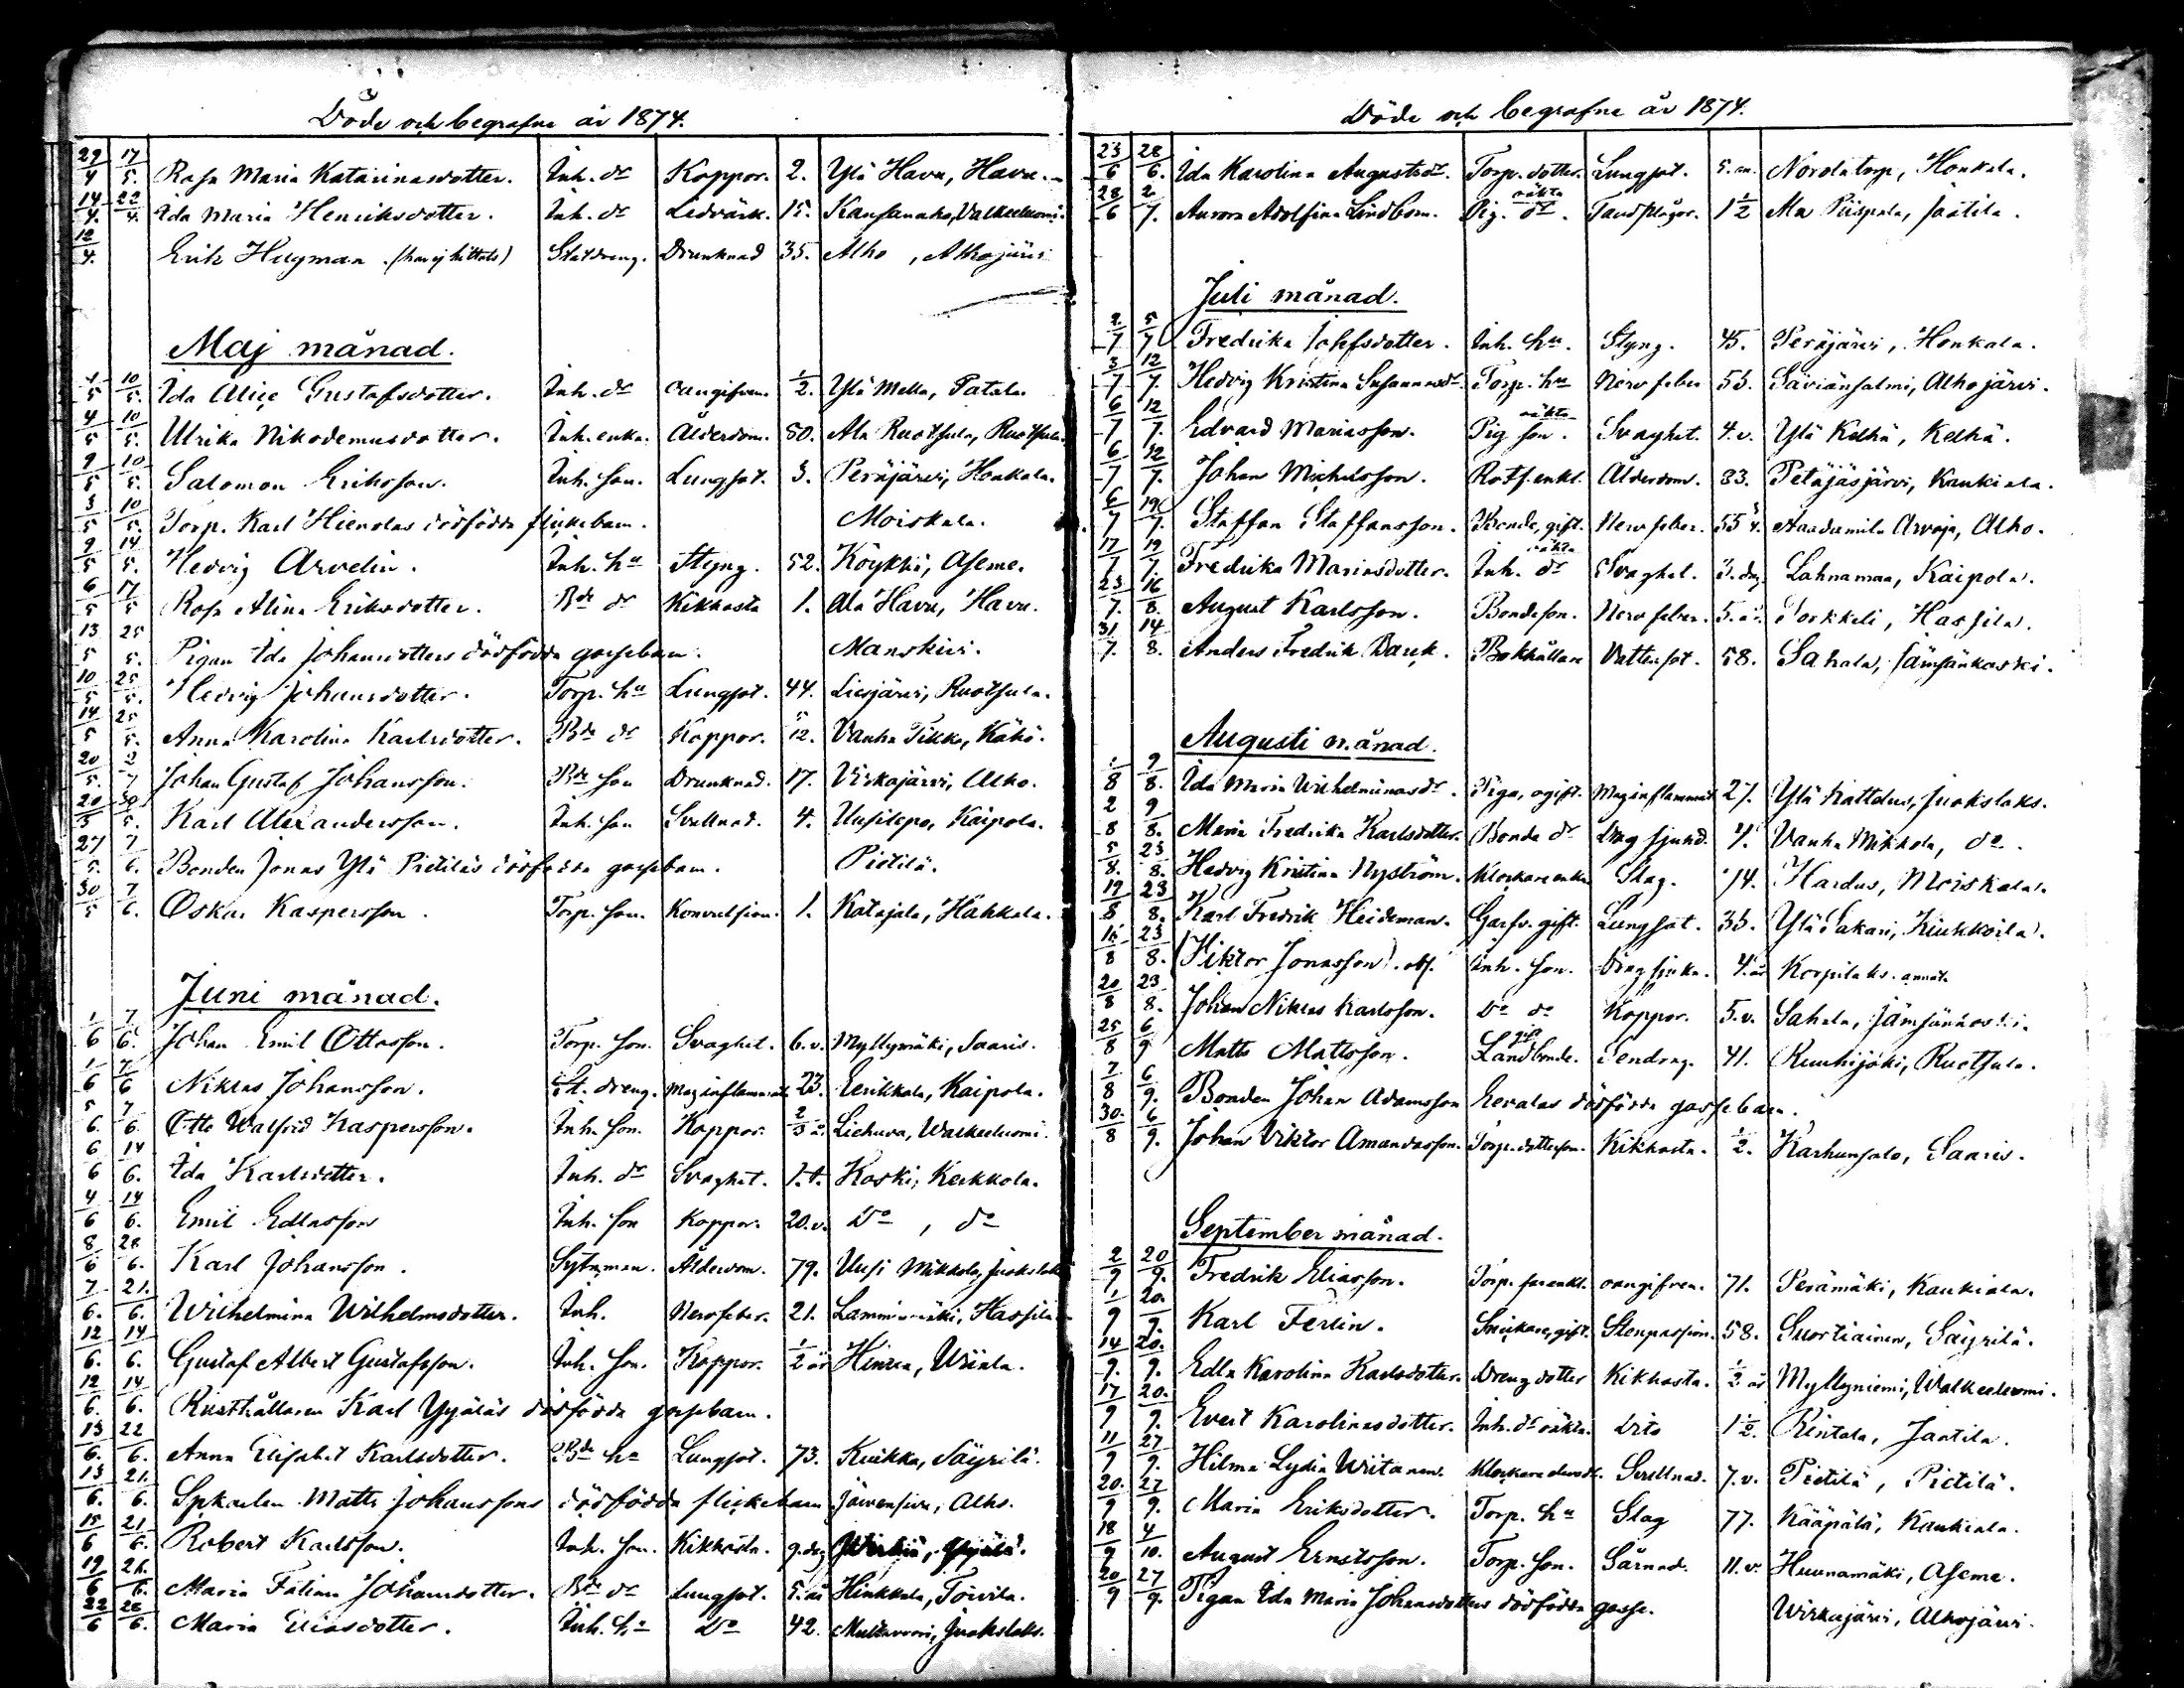 Döde och begrafne år 1874.
29/4 17/5. Rosa Maria Katarinasdotter. Inh. dr Koppor. 2. Ylä Havu, Havu.
14/4. 22/4. Ida Maria Henriksdotter. Inh. dr Ledvärk. 15. Kansanaho, Valkeeluomi.
12/4. Erik Hugman. (har ej hittats) Statdreng. Drunknad 35. Alho, Alhojärvi
Maj månad.
1/5 10/5. Ida Alice Gustafsdotter. Inh. dr oangifven. 1/2. Ylä Mella, Patala.
4/5 10/5. Ulrika Nikodemusdotter. Inh. enka. Ålderdom. 80. Ala Ruotsula, Ruotsula.
9/5 10/5. Salomon Eriksson. Inh. son. Lungsot. 3. Peräjärvi, Honkala.
3/5 10/5. Torp. Karl Hienolas dödfödda flickebarn. Moiskala.
9/5 14/5. Hedvig Arvelin. Inh. hu Styng. 52. Köykki, Aseme.
6/5 17/5 Rosa Alina Eriksdotter. Bde dr Kikhosta 1. Ala Havu, Havu.
13/5 25/5. Pigan Ida Johansdotters dödfödda gossebarn. Manskivi.
10/5 25/5. Hedvig Johansdotter. Torp. hu Lungsot. 44. Liesjärvi, Ruotsula.
14/5 25/5. Anna Karolina Karlsdotter. Bde dr Koppor. 5/12. Vanha Tikka, Kähö.
20/5. 2/7 Johan Gustaf Johansson. Bde son Drunknad. 17. Virkajärvi, Alho.
20/5 30/5. Karl Alexandersson. Inh. son Svullnad. 4. Uusitupa, Kaipola.
27/5. 7/6. Bonden Jonas Ylä Pietiläs dödfödda gossebarn. Pietilä.
30/5 7/6. Oskar Kaspersson. Torp. son. Konvulsion. 1. Katajala, Hahkala.
Juni månad.
1/6 7/6. Johan Emil Ottosson. Torp. son. Svaghet. 6.v. Myllymäki, Saaris.
1/6 7/6 Niklas Johansson. St. dreng. Maginflammat. 23. Eerikkala, Kaipola.
5/6. 7/6. Otto Walfrid Kaspersson. Inh. son. Koppor. 2/3 år. Liehuva, Walkeeluomi.
6/6 14/6. Ida Karlsdotter. Inh. dr Svaghet. 1.t. Koski, Keikkola.
4/6 14/6. Emil Edlasson Inh. son Koppor. 20.v. Do, do
8/6 28/6. Karl Johansson. Sytnman. Ålderdom. 79. Uusi Mikkola, Juokslaks
7/6. 21./6. Wilhelmina Wilhelmsdotter. Inh. Nervfeber. 21. Lamminmäki, Hassila
12/6. 14/6. Gustaf Albert Gustafsson. Inh. son. Koppor. 1/2 år Hinzza, Wiiala.
12/6. 14/6. Rusthållaren Karl Yijäläs dödfödda gossebarn.
13/6. 22/6. Anna Elisabet Karlsdotter. Bde hu Lungsot. 73. Kuikka, Säyrilä.
13/6. 21./6. Spkarlen Matts Johanssons dödfödda flickebarn Järvensivu, Alho.
15/6 21/6. Robert Karlsson. Inh. son. Kikhosta. 9.dg
19/6 26./6. Maria Fatima Johansdotter. Bde dr Lungsot. 5.år Hinkkala, Toivila.
22/6 28/6. Maria Eliasdotter. Inh. hu Do 42. Multavuori, Juokslaks.
Döde och begrafne år 1874.
23/6 28/6. Ida Karolina Augustsdr. Torp. dotter. Lungsot. 5.m. Nordatorp, Honkala.
28/6 2/7. Aurora Adolfina Lindbom. Pig. oäkta dr. Tandplågor. 1 1/2 Ala Piispala, Jaatila.
Juli månad.
2./7 5/7 Fredrika Josefsdotter. Inh. hu. Styng. 45. Peräjärvi, Honkala.
3/7 12/7. Hedvig Kristina Susannasdr. Torp. hu Nervfeber 53. Saviänsalmi, Alhojärvi.
6/7 12/7. Edvard Mariasson. Pig oäkta son. Svaghet. 4.v. Ylä Kelhä, Kelhä.
6/7 12/7. Johan Michelsson. Rotf. enkl. Ålderdom. 83. Petäjäsjärvi, Kaukiala.
6/7 19/7. Staffan Staffansson. Bonde, gift. Nervfeber. 55 Aaadamila Arvaja, Alho.
17/7 19/7. Fredrika Mariasdotter. Inh. oäkta dr Svaghet. 3.dag Lahnamaa, Kaipola.
23/7. 16/8. August Karlsson. Bondeson. Nervfeber. 5.år. Torkkeli, Hassila.
31/7. 14/8. Anders Fredrik Barck. Bokhållare Vattensot. 58. Sahala, Jämsänkoski.
Augusti månad.
1/8 9/8. Ida Maria Wilhelminasdr. Piga, ogift. Maginflammat. 27. Ylä Kattelus, Juokslaks.
2/8 9/8. Maria Fredrika Karlsdotter. Bonda dr Dragsjukd. 7. Vanha Mikkola, do.
5/8. 23/8. Hedvig Kristina Nyström. Klockare enka Slag. 74. Hardus, Moiskala.
19/8 23/8. Karl Fredrik Heideman. Garfv. gift. Lungsot. 33. Ylä Sakari, Kiukkoila.
15/8 23/8. (Viktor Jonasson). obs. Inh. son. Dragsjuka. 4.år Korpilaks. annot.
20/8 23/8. Johan Niklas Karlsson. Do do Koppor. 5.v. Sahala, Jämsänkoski.
25/8 6/9 Matts Mattsson. gift Landbonde. Sendrag. 41. Ruuhijoki, Ruotsula.
7/8 6/9. Bonden Johan Adamsson Eevalas dödfödda gossebarn.
30./8 6/9. Johan Viktor Amandasson. Torp. dotterson. Kikhosta. 1/2. Karhunsalo, Saaris.
September månad.
2/9 20/9. Fredrik Eliasson. Torp. far enkl. oangifven. 71. Perämäki, Kaukiala.
1/9 20./9. Karl Ferlin. Snickare, gift. Stenpassion. 58. Suortiainen, Säyrilä.
14/9. 20./9. Edla Karolina Karlsdotter. Drengdotter Kikhosta. 1/2 år Myllyniemi, Walkeeluomi.
17/9 20./9. Evert Karolinasdotter. Inh. dr oäkta. Dito 1 1/2. Rintala, Jaatila.
11/9 27/9. Hilma Lydia Wiitanen. Klockare Svullnad. 7.v. Pietilä, Pietilä.
20./9 27/9. Maria Eriksdotter. Torp. hu Slag 77. Kääpälä, Kaukiala.
18/9 4/10. August Ernstsson. Torp. son. Sårnad. 11.v. Huunamäki, Aseme.
20/9 27/9. Pigan Ida Maria Johansdotters dödfödda gosse. Wirkajärvi, Alhojärvi.